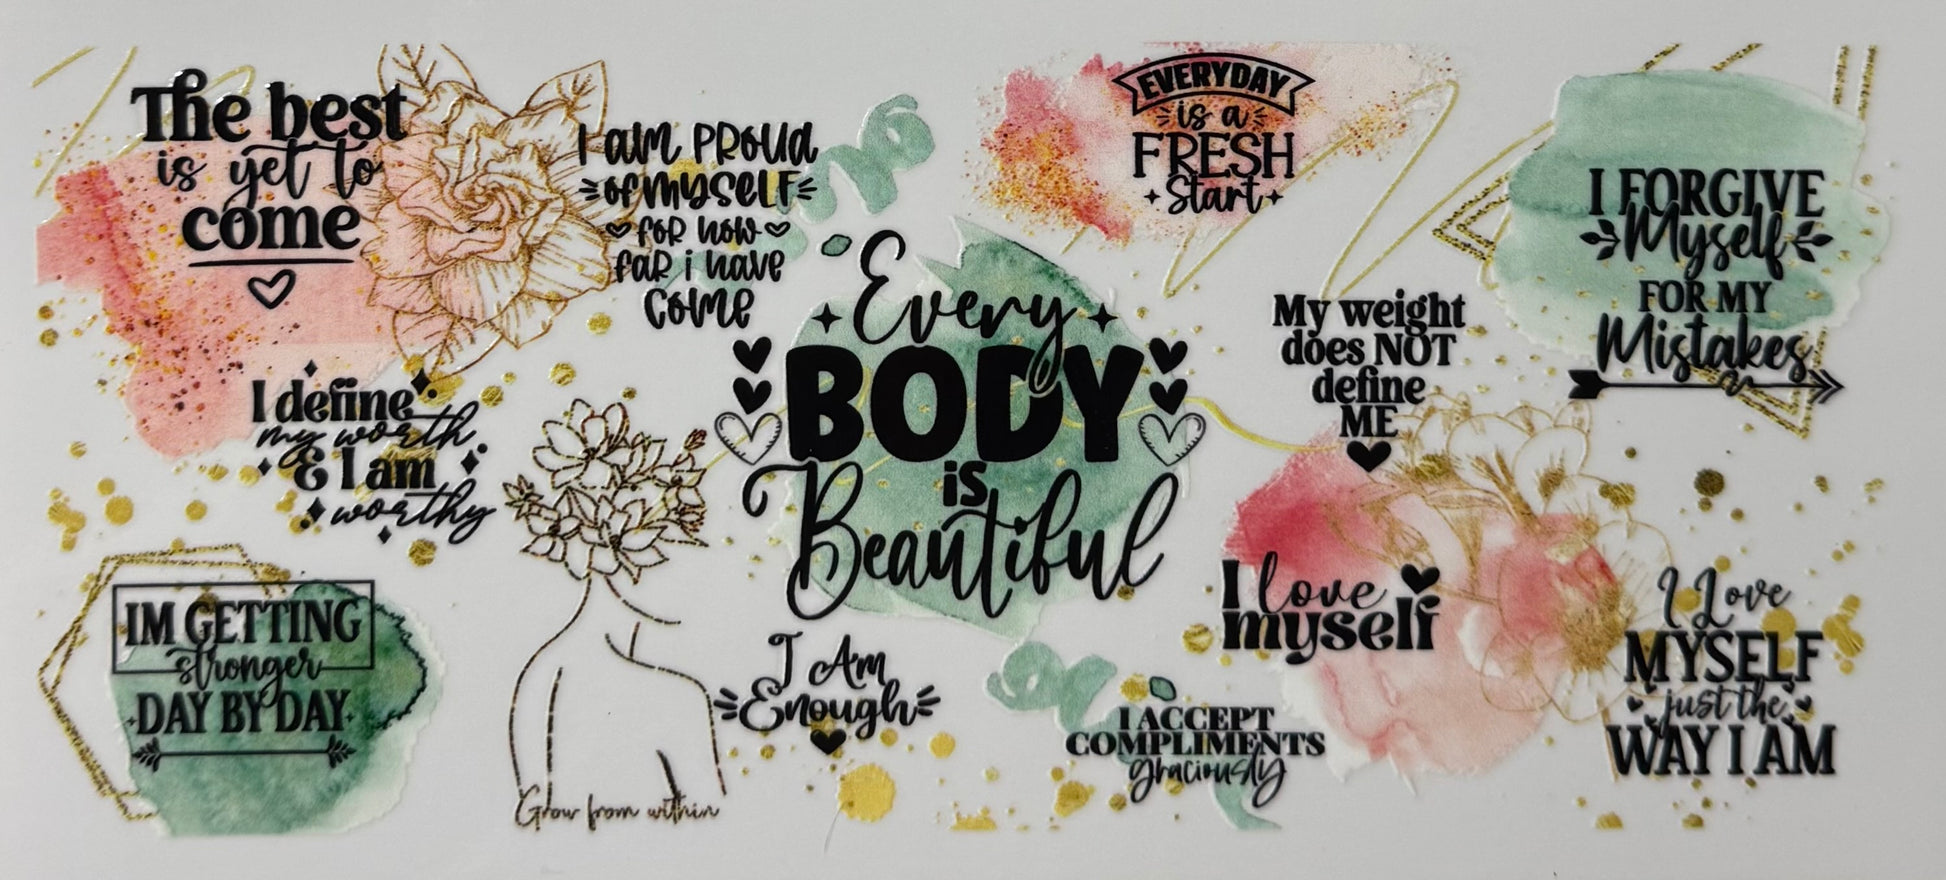 The best
is yet to
come
I am PROUD
of myself
for how
far i have
come
EVERYDAY
is a
FRESH
Start
I FORGIVE
Myself
FOR MY
Mistakes
Every
BODY
is
Beautiful
My weight
does NOT
define
ME
I define
my worth
& I am
worthy
IM GETTING
stronger
DAY BY DAY
Grow from within
I Am
Enough
I ACCEPT
COMPLIMENTS
graciously
I love
myself
I Love
MYSELF
just the
WAY I AM